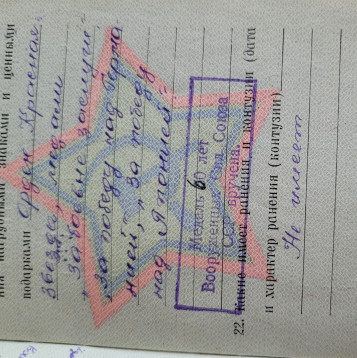 нагрудными знаками и ценными
подарками Орден Красная
звезда, медали
"За боевые заслуги"
"За победу над Герма
нией", "За победу
над Японией"
Медаль 60 лет
Вооруженных Сил Союза
ССР вручена.
22. Какие имеет ранения и контузии (дата
и характер ранения (контузии)
Не имеет